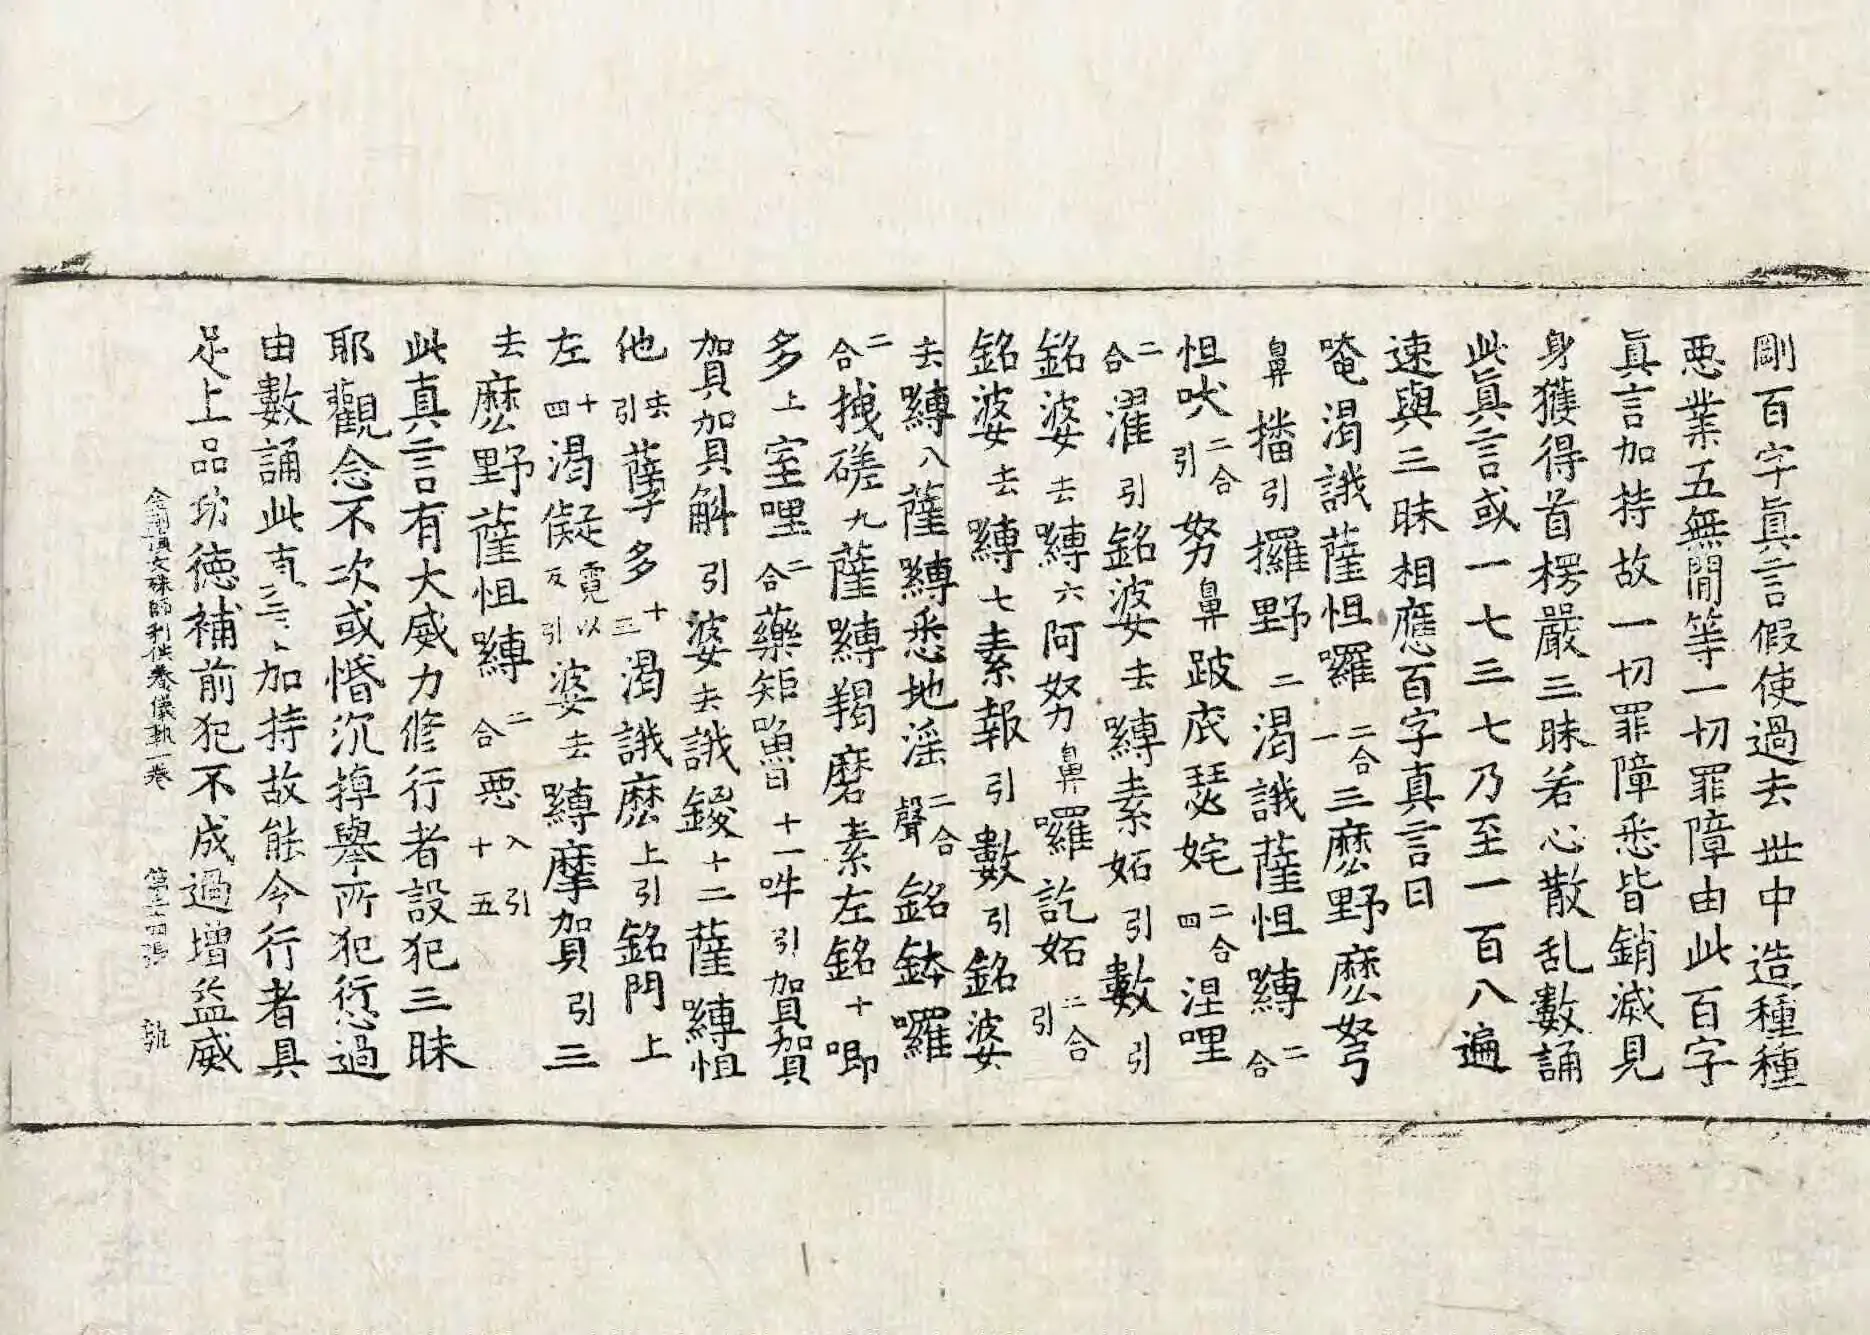 剛百字眞言假使過去世中造種種
惡業五無閒等一切罪障由此百字
眞言加持故一切罪障悉皆銷滅見
身獲得首楞嚴三昧若心散乱數誦
此眞言或一七三七乃至一百八遍
速與三昧相應百字真言曰
唵渴誐薩怛囉二合一三麽野麽努
鼻播引攞野二渴誐薩怛嚩二合
怛吠二合引努鼻跛底瑟姹二合四涅哩
二合濯引銘婆去嚩素妬引數引
銘婆去嚩六阿努鼻囉訖妬二合引
銘婆去嚩七素報引數引銘婆
去嚩八薩嚩悉地淫二合聲銘鉢囉
二合拽磋九薩嚩羯磨素左銘十唧
多上室哩二合藥矩嚕十一吽引賀賀
賀賀斛引婆去誐鑁十二薩嚩怛
他去引孽多十三渴誐麽上引銘門上
左十四渴儗霓以反引婆去嚩摩賀引三
去麽野薩怛嚩二合惡入引十五
此真言有大威力修行者設犯三昧
耶觀念不次或惛沉掉舉所犯愆過
由數誦此加持故能令行者具
足上品功徳補前犯不成過增益威
金剛頂文殊師利供養儀軌一卷 張